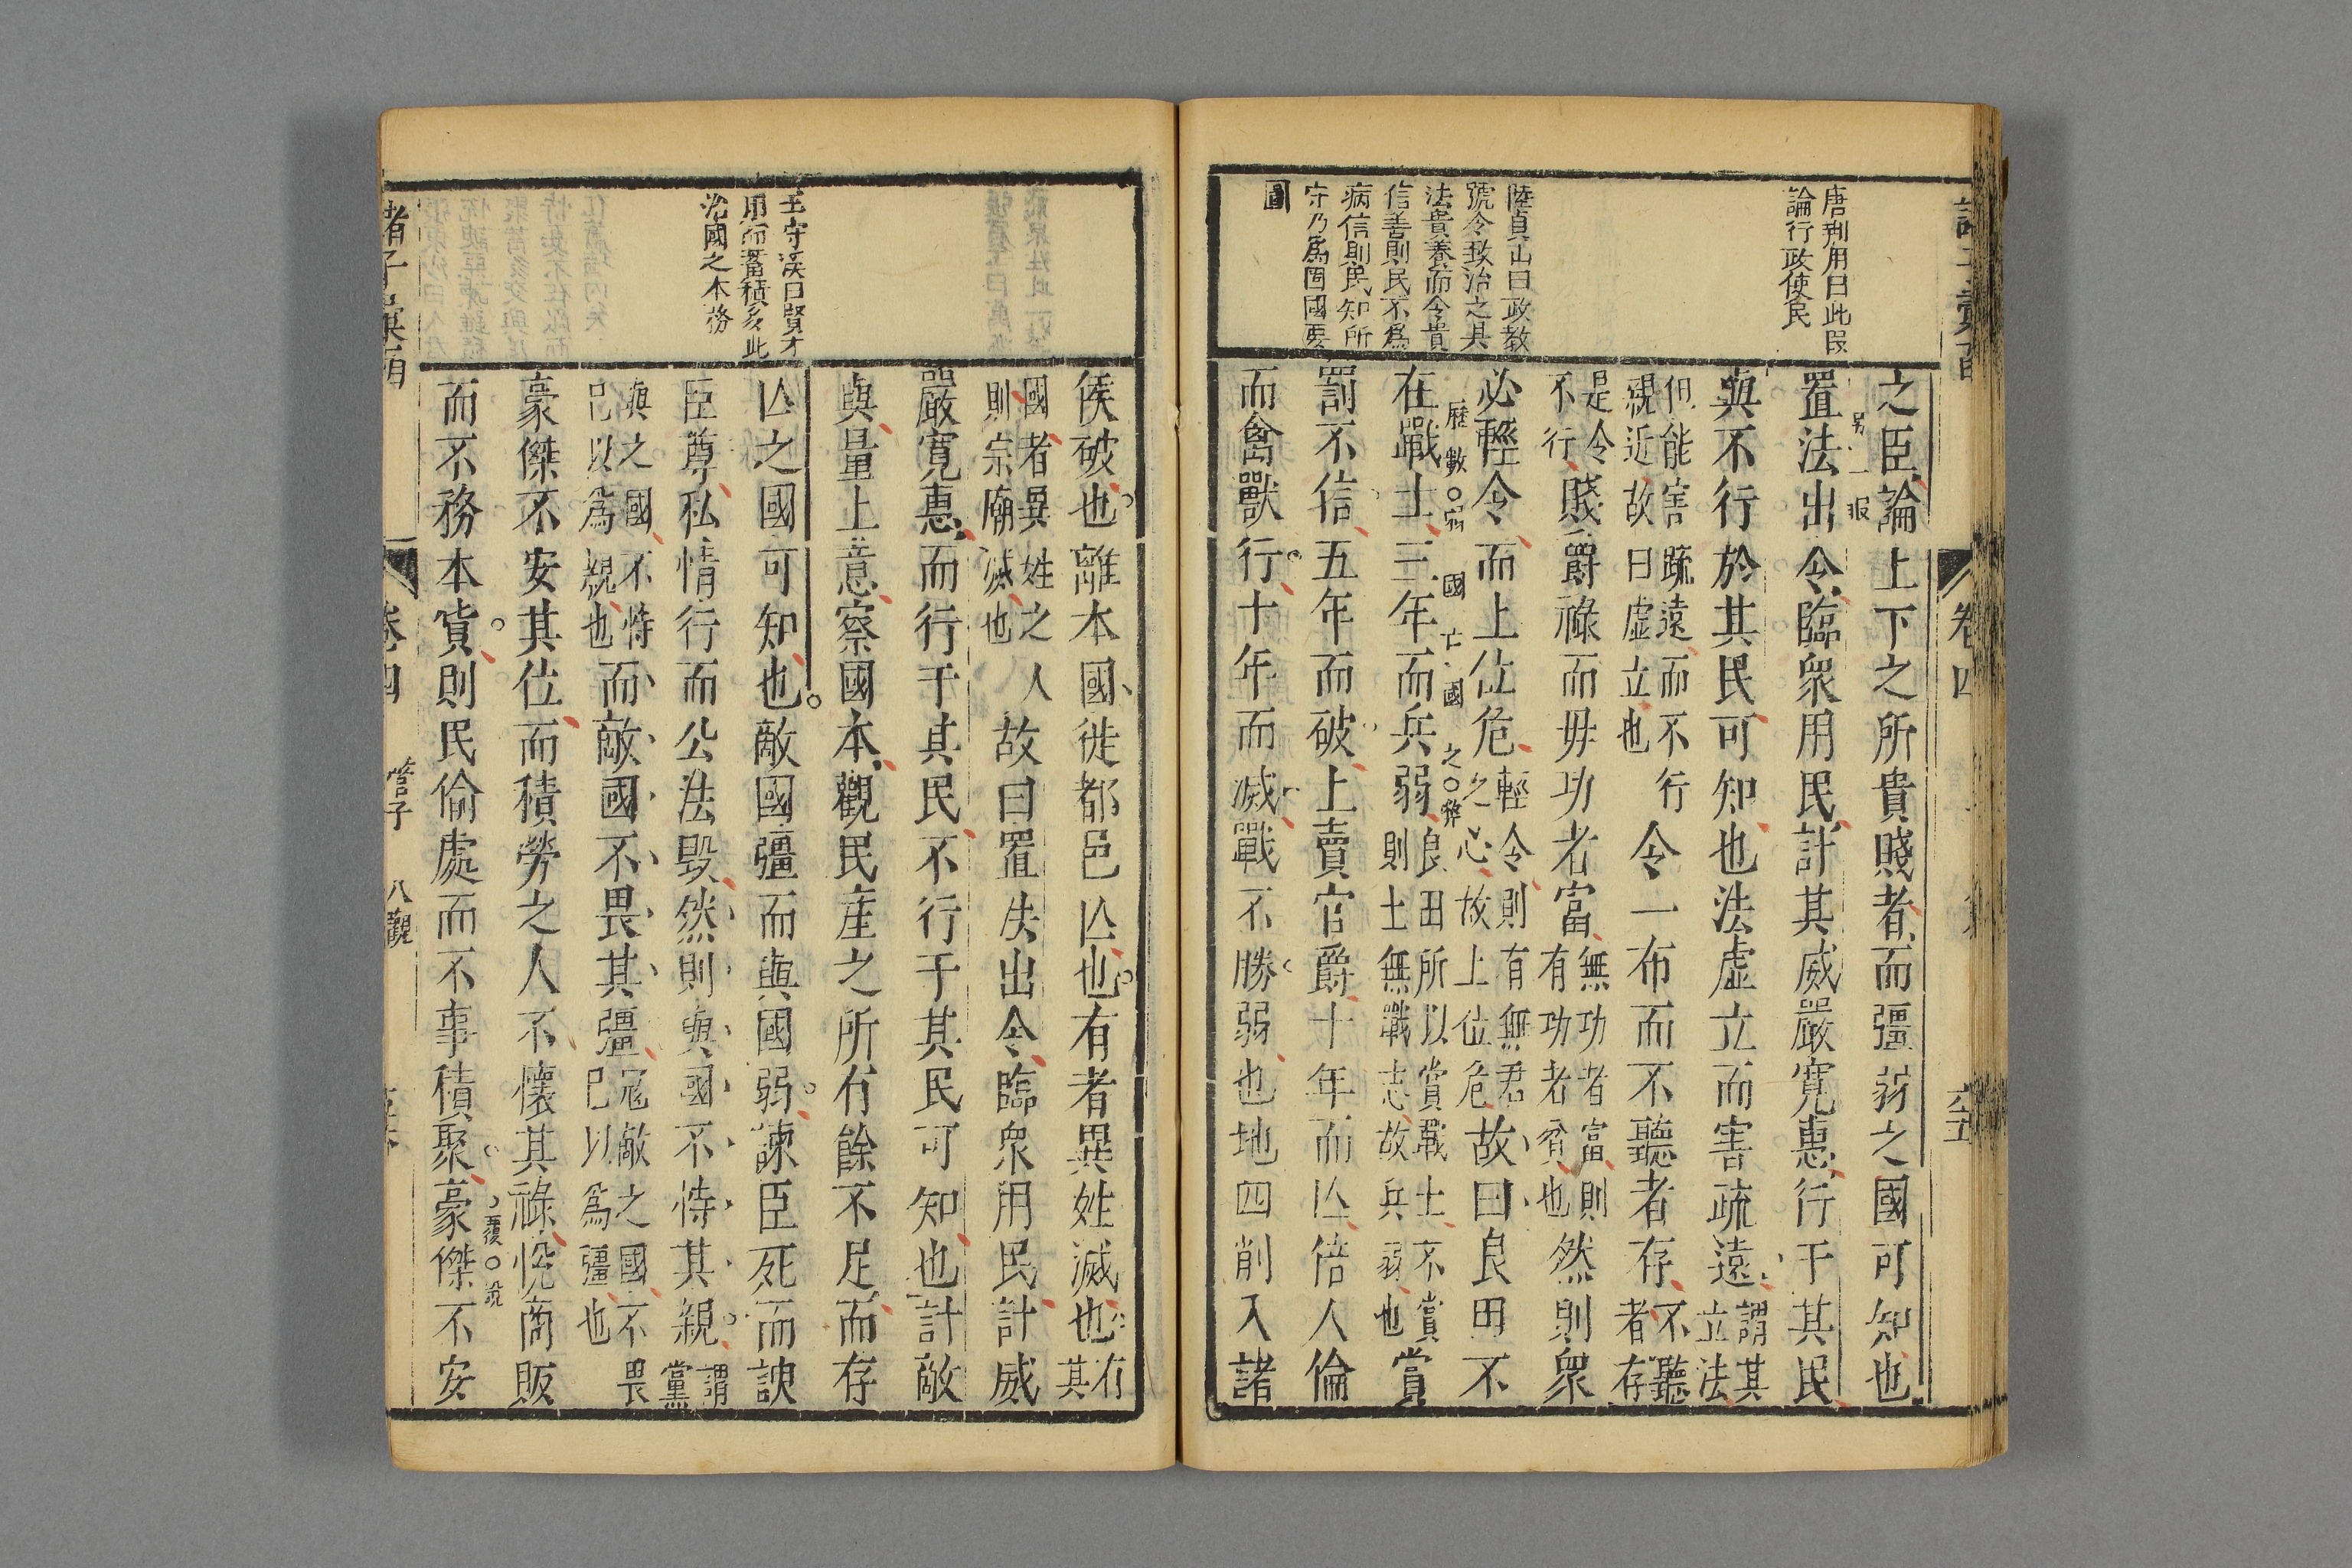 唐荆川曰此段
論行政使民
陸貞山曰政教
號令致治之具
法貴養而令貴
信善則民不爲
病信則民知所
守乃爲固國要
圖
之臣論上下之所貴賤者而彊弱之國可知也
另一股
置法出令臨衆用民計其威嚴寛惠行于其民
與不行於其民可知也法虛立而害疏遠謂其立法
但能害疏遠而不行親近故曰虛立也令一布而不聽者存不聽者存
是令不行賤爵祿而毋功者富無功者富則有功者貧也然則衆
必輕令而上位危輕令則有無君之心故上位危故曰良田不
歷數○弱國亡國之○弊
在戰士三年而兵弱良田所以賞戰士不賞則士無戰志故兵弱也賞
罰不信五年而破上賣官爵十年而亾倍人倫
而禽獸行十年而滅戰不勝弱也地四削入諸
卷四
王守溪曰賢才
用而蓄積多此
治國之本務
侯破也離本國徙都邑亾也有者異姓滅也有其
國者異姓之人則宗廟滅也故曰置法出令臨衆用民計威
嚴寛惠而行于其民不行于其民可知也計敵
與量上意察國本觀民產之所有餘不足而存
亾之國可知也敵國彊而與國弱諫臣死而諛
臣尊私情行而公法毀然則與國不恃其親謂黨
與之國不恃己以爲親也而敵國不畏其彊冦敵之國不畏己以爲彊也
豪傑不安其位而積勞之人不懷其祿悅商販
覆○說
而不務本貨則民偷處而不事積聚豪傑不安
卷四
管子
八觀